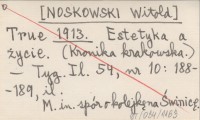 [NOSKOWSKI Witold]
True 1913. Estetyka a
życie. (Kronika krakowska.)
— Tyg. Il. 54, nr 10: 188-
-189, il.
M. in. spór o kolejkę na Świnicę.